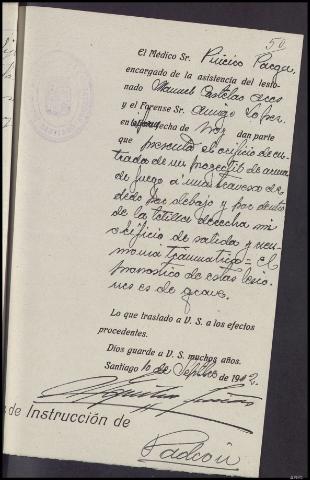 50
El Médico Sr. Piñeiro Parga,
encargado de la asistencia del lesio-
nado Manuel Castelao
y el Forense Sr. Amigo López
en fecha de hoy dan parte
que presenta el orificio de en-
trada de un proyectil de arma
de fuego á una traves de
dedo por debajo y por dentro
de la tetilla derecha sin
orificio de salida y neu-
monia traumatica = el
pronostico de estas lesio-
nes es de grave.
Lo que traslado a U. S. a los efectos
procedentes.
Dios guarde a U. S. muchos años.
Santiago 10 de de 19
de Instrucción de
Padrón